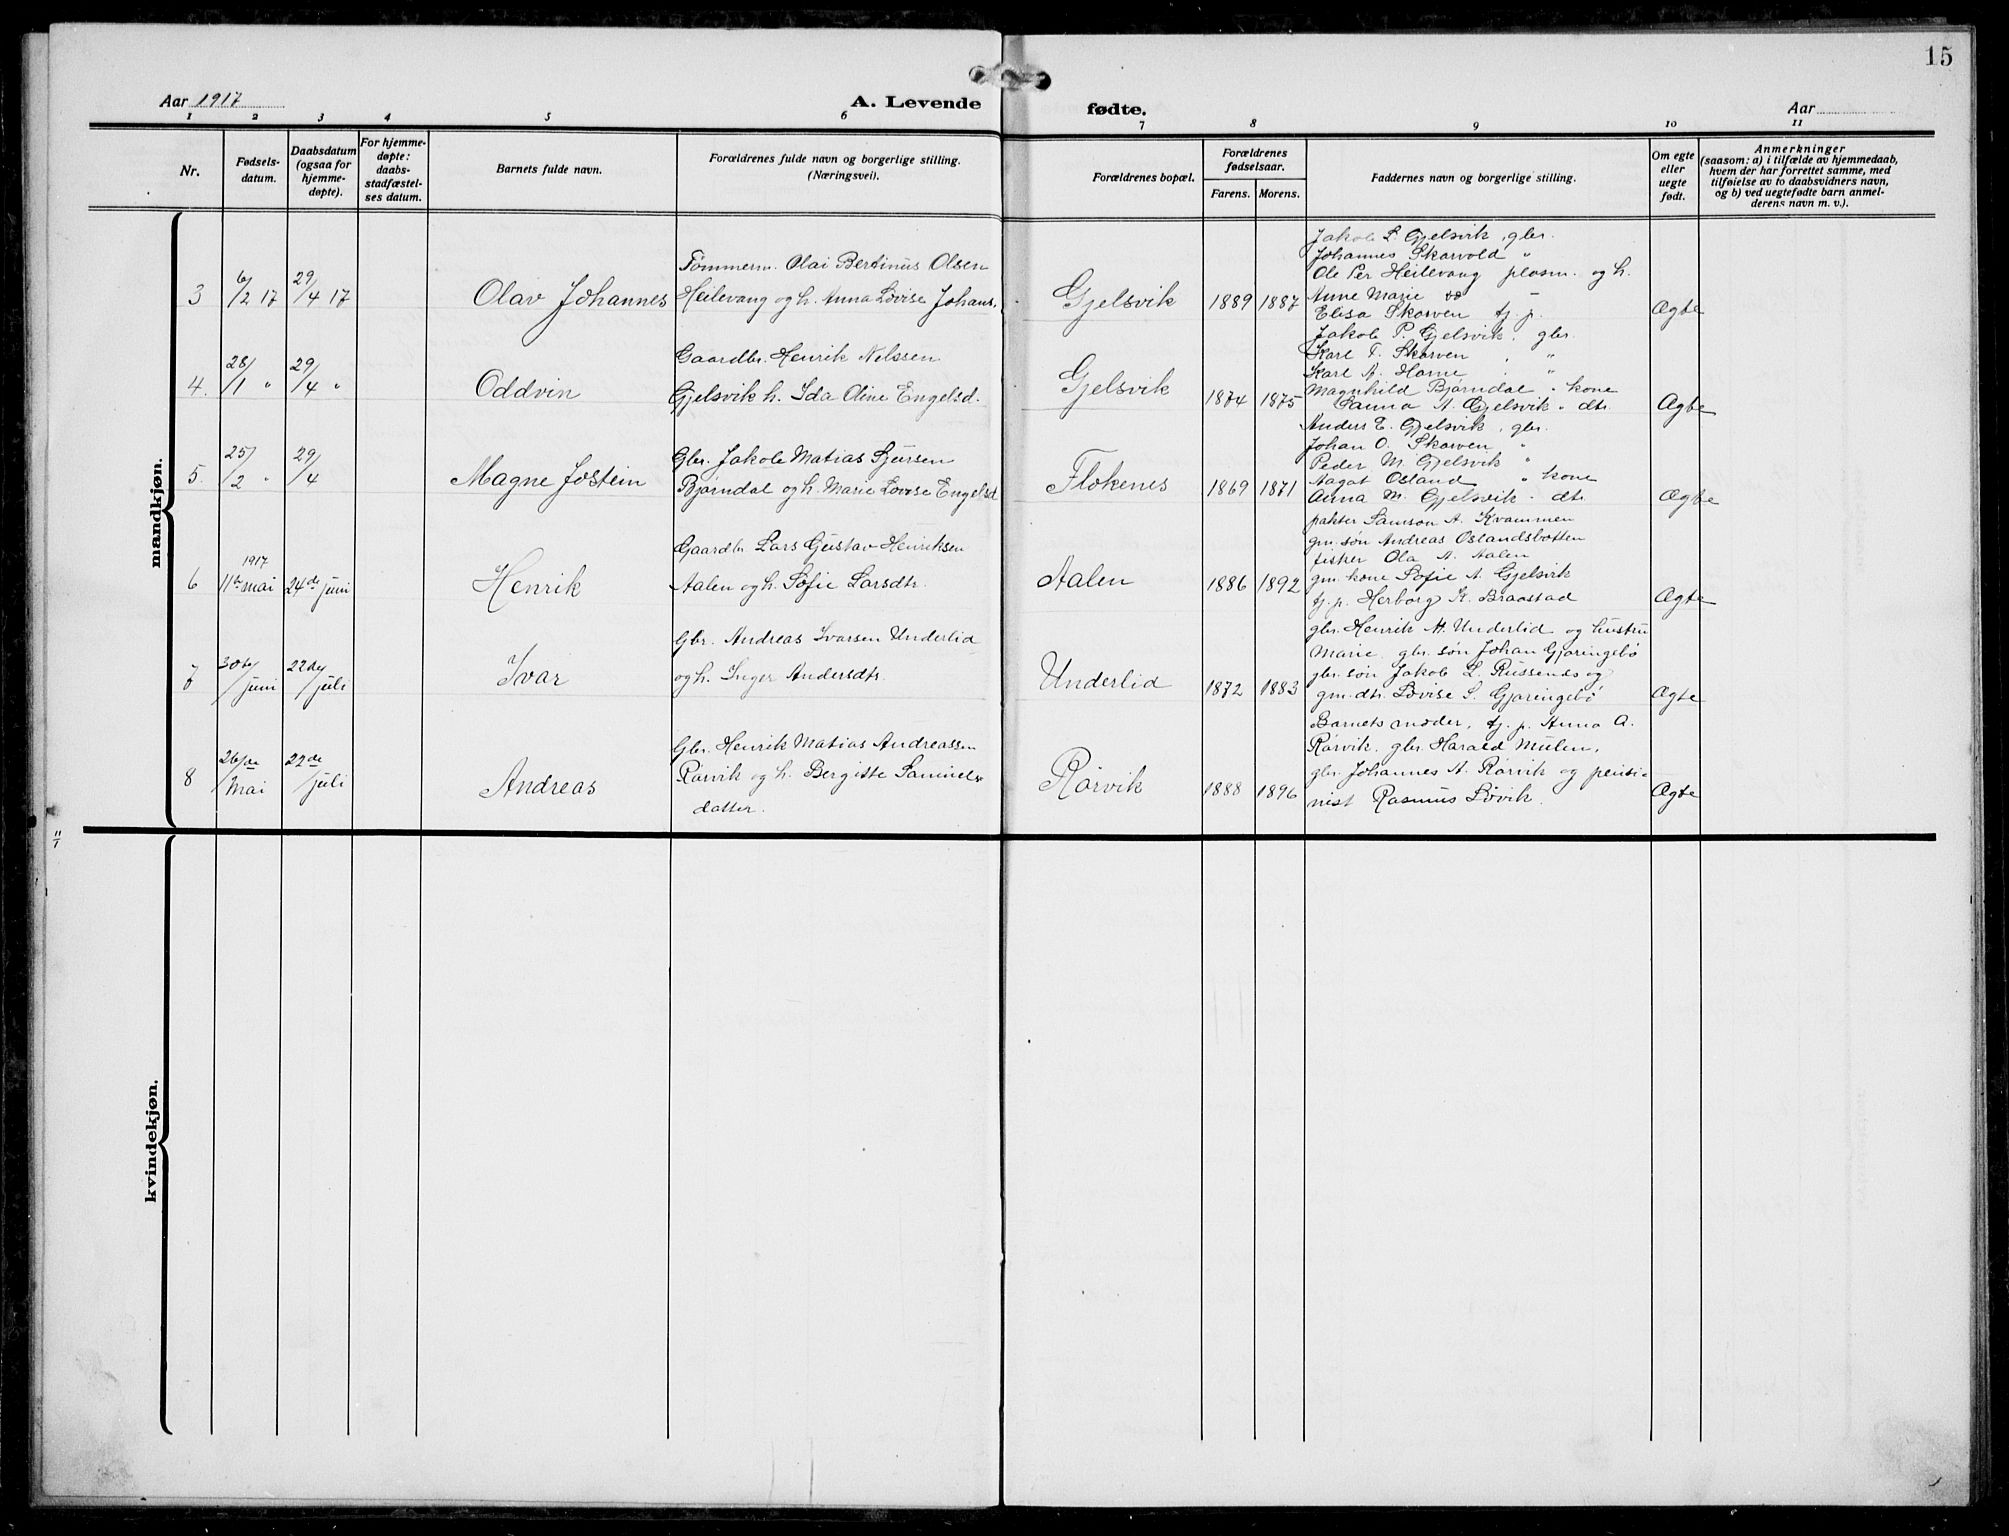 15
Aar 1917
A. Levende fødte.
Aar
1 2 3 4 5 6 7 8 9 10 11
Nr.
Fødsels-
datum.
Daabsdatum
(ogsaa for
hjemme-
døpte).
For hjemme-
døpte:
daabs-
stadfæstel-
ses datum.
Barnets fulde navn.
Forældrenes fulde navn og borgerlige stilling.
(Næringsvei).
Forældrenes bopæl.
Forældrenes
fødselsaar.
Farens. Morens.
Faddernes navn og borgerlige stilling.
Om egte
eller
uegte
født.
Anmerkninger
(saasom: a) i tilfælde av hjemmedaab,
hvem der har forrettet samme, med
tilføielse av to daabsvidners navn,
og b) ved uegtefødte barn anmel-
derens navn m. v.).
mandkjøn.
3
6/2 17
29/4 17
Olav Johannes
Tømmerm. Olai Bertinus Olsen
Heilevang og h. Anna Lovise Johans.
Gjelsvik
1889 1887
Jakob L. Gjelsvik, gbr.
Johannes Skorvold "
Ole Per Heilevang plasm. og h.
Anne Marie
Elisa Skorven tj. p.
Ægte
4.
28/1 "
29/4 "
Oddvin
Gaardbr. Henrik Nilssen
Gjelsvik h. Ida Oline Engelsd.
Gjelsvik
1874 1875
Jakob P. Gjelsvik, gbr.
Karl T. Skorven "
Karl A. Horne "
Magnhild Bjørndal " kone
Sanna A. Gjelsvik " dtr.
Ægte
5.
25/2 "
29/4
Magne Jostein
Gbr. Jakob Matias Sjursen
Bjørndal og h. Marie Lovise Engelsd
Flokenes
1869 1871
Anders E. Gjelsvik, gbr.
Johan O. Skorven "
Peder M. Gjelsvik "
Aagot Osland " kone
Anna M. Gjelsvik " dtr.
Ægte
6
1917
11te mai
24de juni
Henrik
Gaardbr Lars Gustav Henriksen
Aalen og h. Sofie Larsdtr.
Aalen
1886 1892
pakter Samson A. Kvammen
gm. søn Andreas Oslandsbotten
fisker Ola A. Aalen
gm. kone Sofie A. Gjelsvik
tj. p. Herborg K. Braastad
Ægte
7
30te/juni
22de/juli
Ivar
Gbr. Andreas Ivarsen Underlid
og h. Inger Andersdtr.
Underlid
1872 1883
gbr. Henrik A. Underlid og hustru
Marie, gbr. søn Johan Gjøringebø
gbr. søn Jakob L. Russenes og
gm. dtr. Lovise S. Gjøringebø
Ægte
8
26de/Mai
22de/juli
Andreas
Gbr. Henrik Matias Andreassen
Rørvik og h. Bergitte Samuels
datter.
Rørvik
1888 1896
Barnets moder, tj. p. Anna A.
Rørvik, gbr. Harald Mulen,
gbr. Johannes A. Rørvik og pensio-
nist Rasmus Løvik.
Ægte
11/1
kvindekjøn.